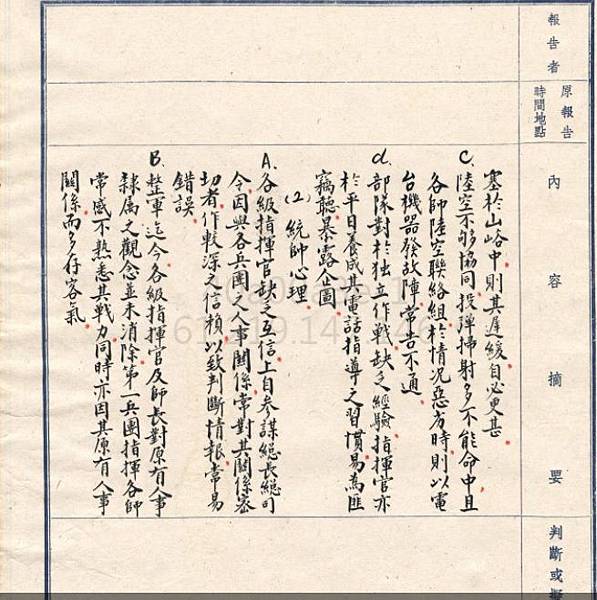 報告者
原報告
時間地點
內容摘要
判斷或擬
塞於山峪中則其遲緩自必更甚
C. 陸空不够協同投彈掃射多不能命中且
各師陸空聯絡組於情况惡劣時則以電
台機器發故障常告不通
d. 部隊對於獨立作戰缺乏經驗指揮官亦
於平日養成其電話指導之習慣易為匪
竊聽暴露企圖
(2) 統帥心理
A. 各級指揮官缺乏互信上自參謀總長總司
令因與各兵團人人事關係常對其關係密
切者作較深之信賴以致判斷情報常易
錯誤
B. 整軍迄今各級指揮官及師長對原有人事
隸屬之觀念並未消除第一兵團指揮各師
常感不熟悉其戰力同時亦因其原有人事
關係而多存客氣